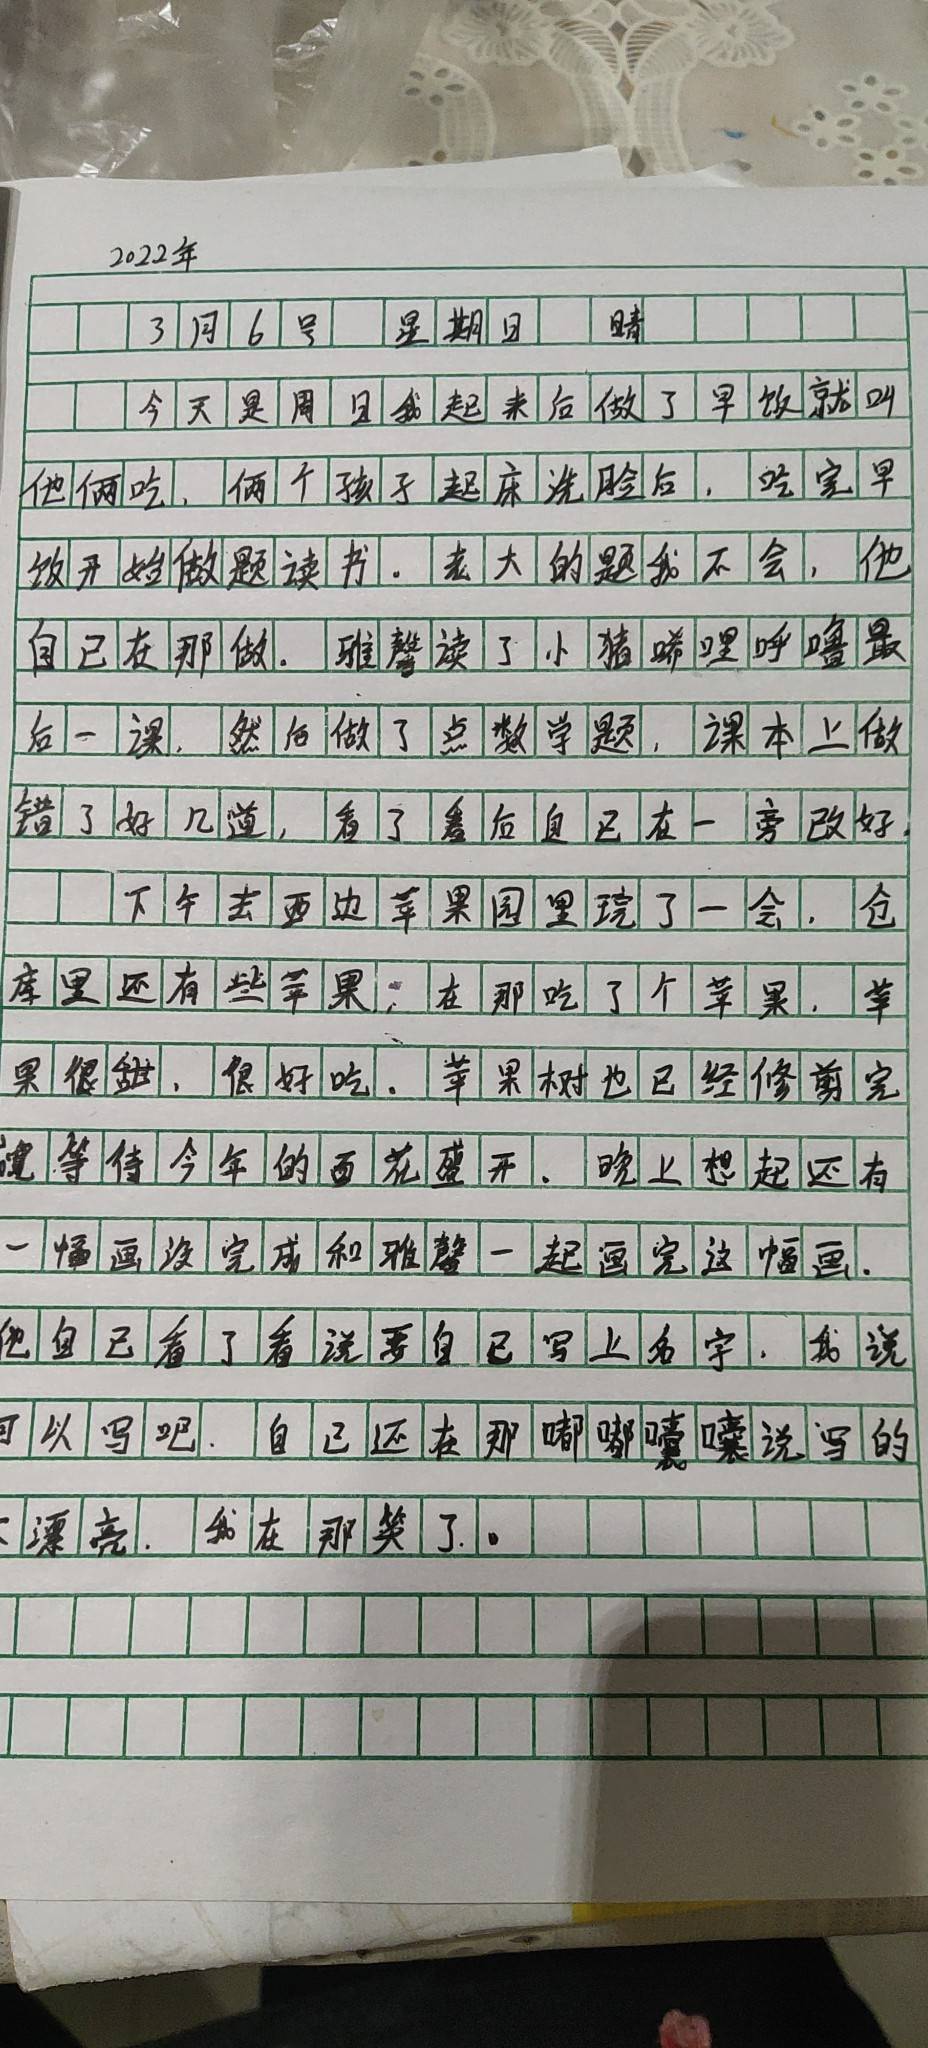 2022年
3月6号 星期日 晴
今天是周日我起来后做了早饭就叫
他俩吃,俩个孩子起床洗脸后,吃完早
饭开始做题读书.老大的题我不会,他
自己在那做.雅馨读了小猪唏哩呼噜最
后一课.然后做了点数学题,课本上做
错了好几道,看了看后自己在一旁改好.
下午去西边苹果园里玩了一会.仓
库里还有些苹果;在那吃了个苹果.苹
果很甜,很好吃.苹果树也已经修剪完
等待今年的百花盛开.晚上想起还有
一幅画没完成和雅馨一起画完这幅画.
他自己看了看说要自己写上名字.我说
可以写吧.自己还在那嘟嘟囔囔说写的
不漂亮.我在那笑了.。